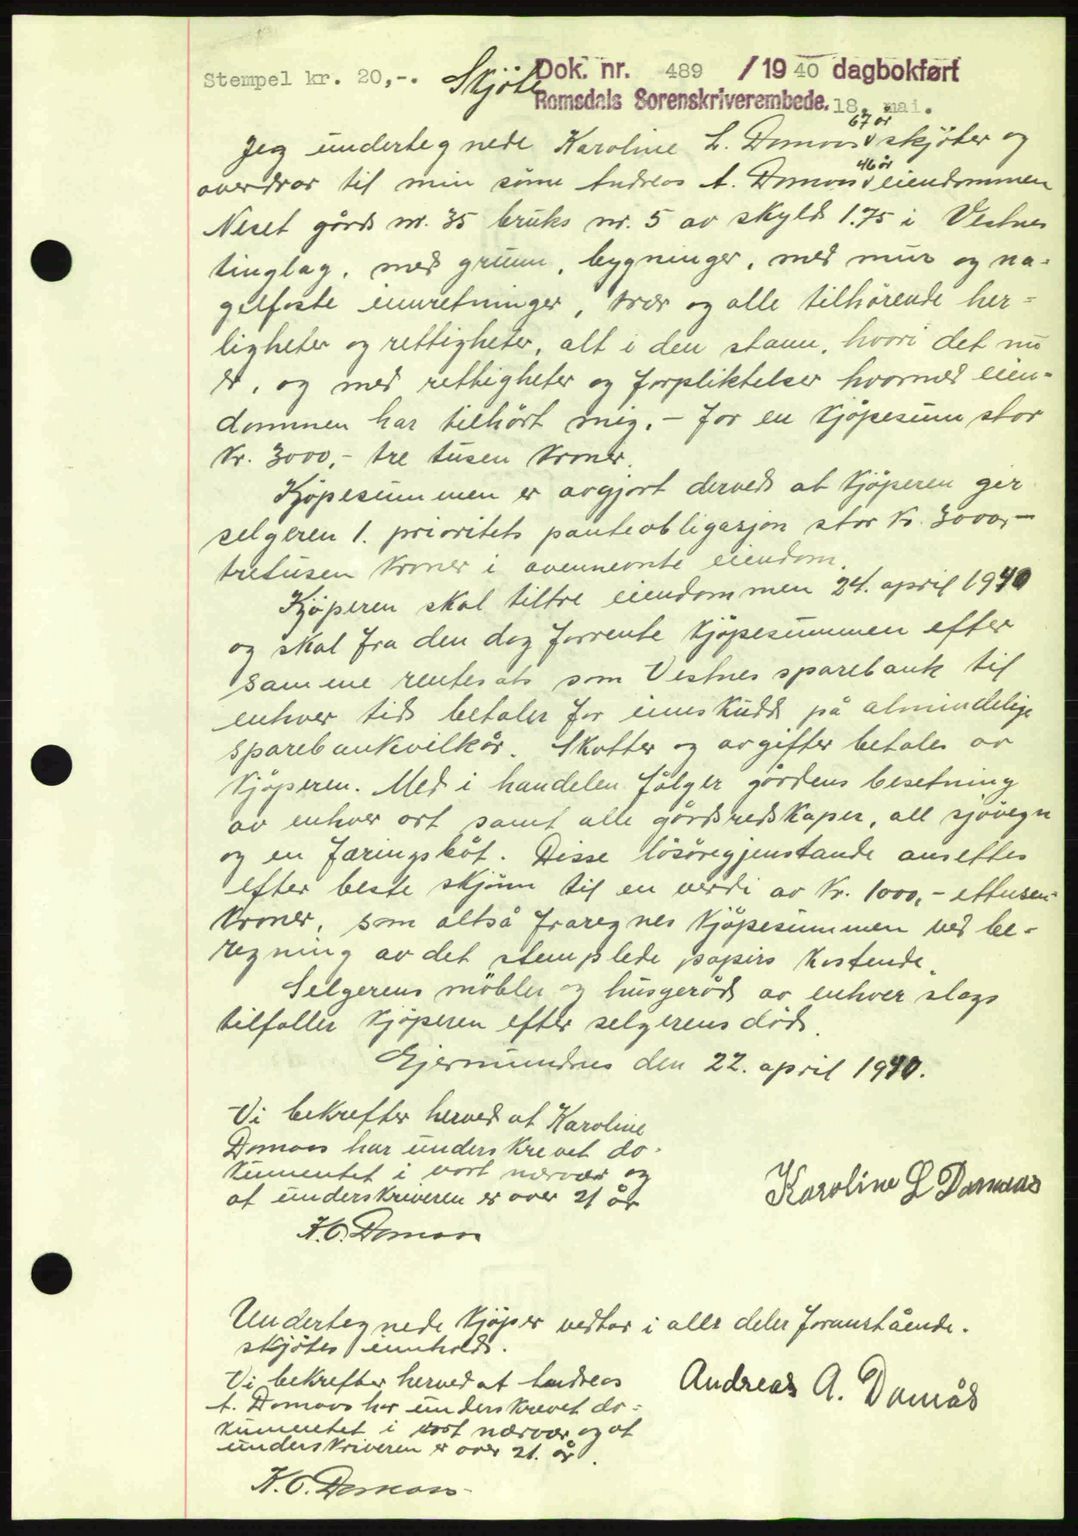 Stempel kr. 20,-. Skjöte Dok. nr. 489 /1940 dagbokført
Romsdals Sorenskriverembede. 18. mai.
67 år
Jeg undertegnede Karoline L. Domaas v skjöter og
46 år
overdrar til min sönn Andreas A. Domaas v eiendommen
Neset gårds nr. 35 bruks nr. 5 av skyld 1.75 i Vestnes
tinglag, med grunn, bygninger, med mur og na-
gelfaste innretninger, trær og alle tilhörende her-
ligheter og rettigheter, alt i den stann, hvori det nu
er, og med rettigheter og forpliktelser hvormed eien-
dommen har tilhört mig. - for en kjöpesum stor
kr. 3000,- tre tusen kroner.
Kjöpesummen er avgjort derved at kjöperen gir
selgeren 1. prioritets panteobligasjon stor kr. 3000,-
tretusen kroner i ovennevnte eiendom.
Kjöperen skal tiltre eiendommen 24. april 1940
og skal fra den dag forrente kjöpesummen efter
samme rentesats som Vestnes sparebank til
enhver tids betaler for innskudd på almindelige
sparebankvilkår. Skatter og avgifter betales av
kjöperen. Med i handelen fölger gårdens besetning
av enhver art samt alle gårdsredskaper, all sjövegn
og en færingsbåt. Disse lösöregjenstande ansettes
efter beste skjönn til en verdi av kr. 1000,- ettusen-
kroner, som altså fraregnes kjöpesummen ved be-
regning av det stemplede papirs kostende.
Selgerens möbler og husgeråd av enhver slags
tilfaller kjöperen efter selgerens död.
Gjermundnes den 22. april 1940.
Vi bekrefter herved at Karoline
Domaas har underskrevet do-
kumentet i vort nærvær og
at underskriveren er over 21 år
Karoline L Domaas
K. O. Domaas
Undertegnede kjöper vedtar i alle deler foranstående.
skjötes innhold.
Vi bekrefter herved at Andreas
A. Domaas har underskrevet do-
kumentet i vort nærvær og at
underskriveren er over 21. år.
Andreas A. Domås
K. O. Domaas